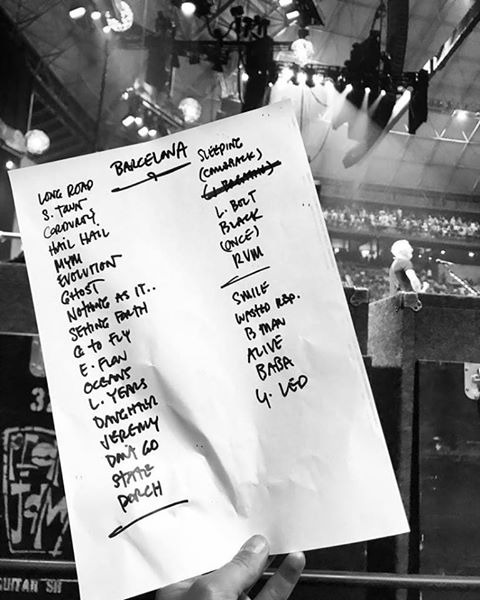 BARCELONA
LONG ROAD
S. TOWN
CORDUROY
HAIL HAIL
MYM
EVOLUTION
GHOST
NOTHING AS IT..
SETTING FORTH
G to FLY
E. FLOW
OCEANS
L. YEARS
DAUGHTER
JEREMY
DON'T GO
STATE
PORCH
SLEEPING
(COMEBACK)
L. BOLT
BLACK
(ONCE)
RVM
SMILE
WASTED REP.
B MAN
ALIVE
BABA
Y. LED
JAM
GUITAR